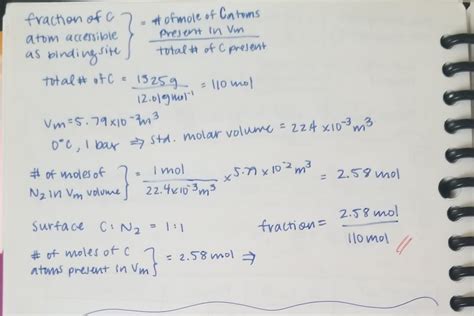 fraction of C
atom accessible
as binding site } = # of mole of C atoms present in Vm / total # of C present
total # of C = 1325g / 12.01gmol⁻¹ = 110 mol
Vm = 5.79×10⁻²m³
0°C, 1 bar ⇒ std. molar volume = 22.4 ×10⁻³m³
# of moles of
N2 in Vm volume } = 1 mol / 22.4×10⁻³m³ × 5.79 ×10⁻²m³ = 2.58 mol
surface C:N2 = 1:1
fraction = 2.58 mol / 110 mol
# of moles of C
atoms present in Vm } = 2.58 mol ⇒